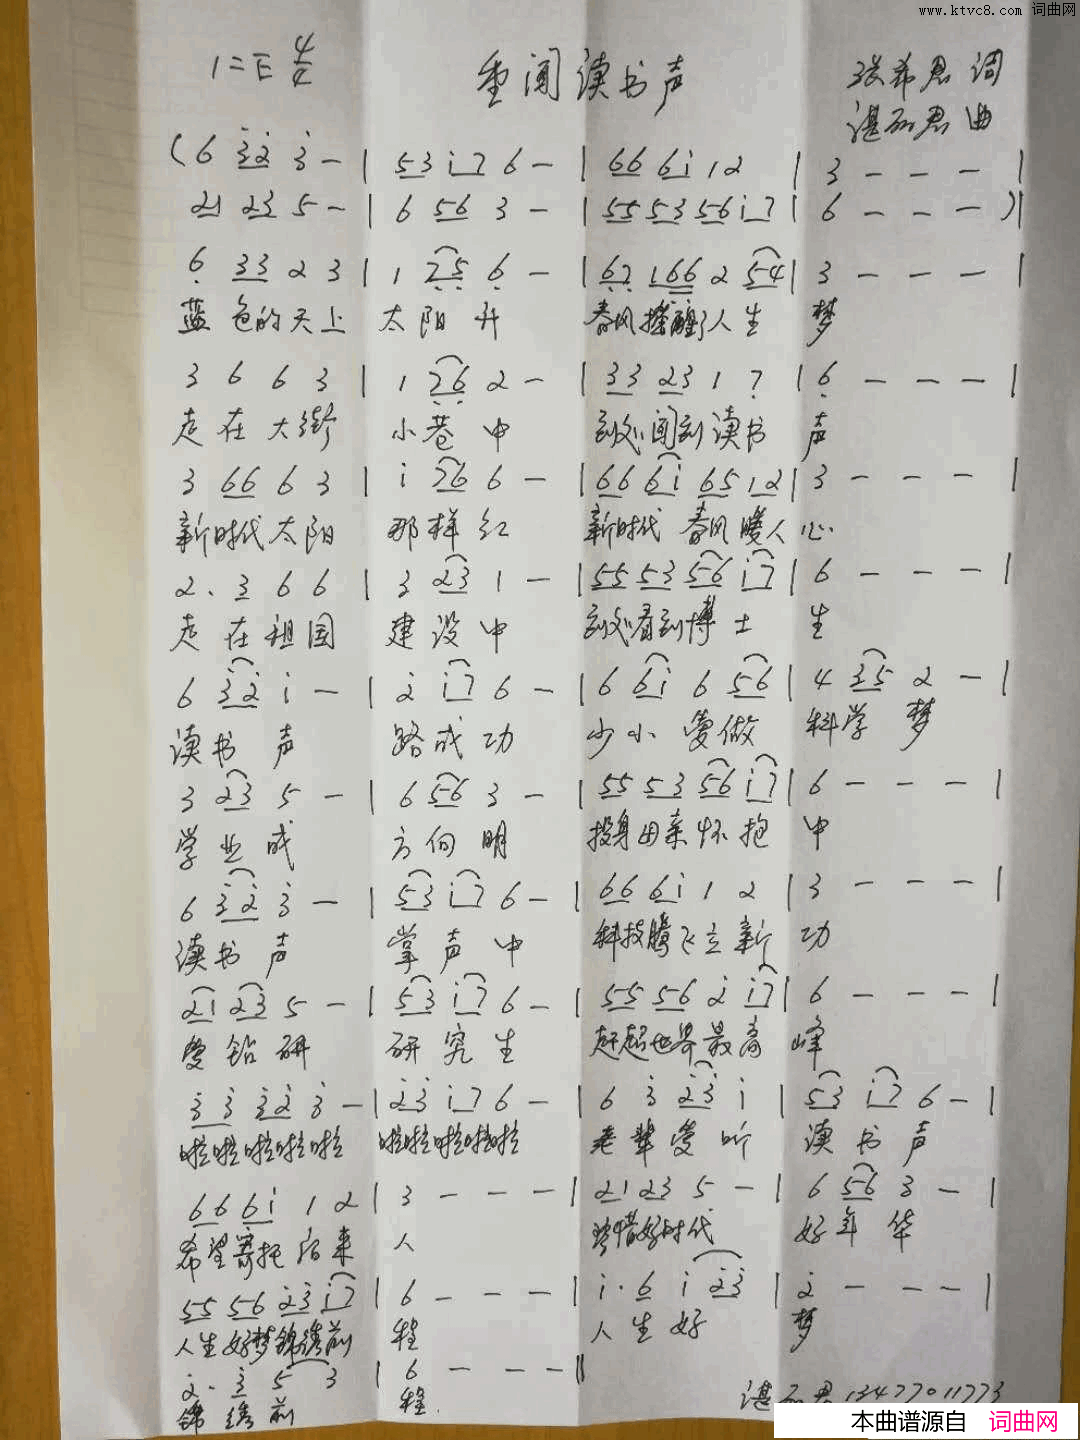 www.ktvc8.com 词曲网
1=E 4/4 重闻读书声 张希君 词
湛丽君 曲
(6 3̇2̇ 3̇ - | 53 i7 6 - | 66 6i 1 2 | 3 - - - |
21 23 5 - | 6 56 3 - | 55 53 56 i7 | 6 - - - )|
6̣ 33 2 3 | 1 2̣5̣ 6̣ - | 6̣7̣ 16̣6̣ 2 54 | 3 - - - |
蓝色的天上 太阳升 春风摧醒了人生 梦
3 6 6 3 | 1 7̣6̣ 2 - | 33 23 1 7̣ | 6̣ - - - |
走在大街 小巷中 到处闻到读书 声
3 66 6 3 | i 76 6 - | 66 6i 65 12 | 3 - - - |
新时代太阳 那样红 新时代 春风暖人 心
2. 3 6 6 | 3 23 1 - | 55 53 56 i7 | 6 - - - |
走在祖国 建设中 到处看到博士 生
6 3̇2̇ i - | 2̇ i7 6 - | 6 6i 6 56 | 4 35 2 - |
读书声 路成功 少小爱做 科学梦
3 23 5 - | 6 56 3 - | 55 53 56 i7 | 6 - - - |
学业成 方向明 投身母亲怀抱 中
6 3̇2̇ 3̇ - | 53 i7 6 - | 66 6i 1 2 | 3 - - - |
读书声 掌声中 科技腾飞立新 功
21 23 5 - | 53 i7 6 - | 55 56 2̇ i7 | 6 - - - |
爱钻研 研究生 赶超世界最高 峰
3̇ 3̇ 3̇2̇ 3̇ - | 2̇3̇ i7 6 - | 6 3̇ 2̇3̇ i | 53 i7 6 - |
啦啦啦啦啦 啦啦啦啦啦 老辈爱听 读书声
66 6i 1 2 | 3 - - - | 21 23 5 - | 6 56 3 - |
希望寄托后来 人 珍惜好时代 好年华
55 56 2̇3̇ i7 | 6 - - - | i. 6 i 2̇3̇ | 2̇ - - - |
人生好梦锦绣前 程 人生好 梦
2̇. 3̇ 5 3 | 6 - - - ‖
锦绣前 程 湛丽君13477011773
本曲谱源自 词曲网